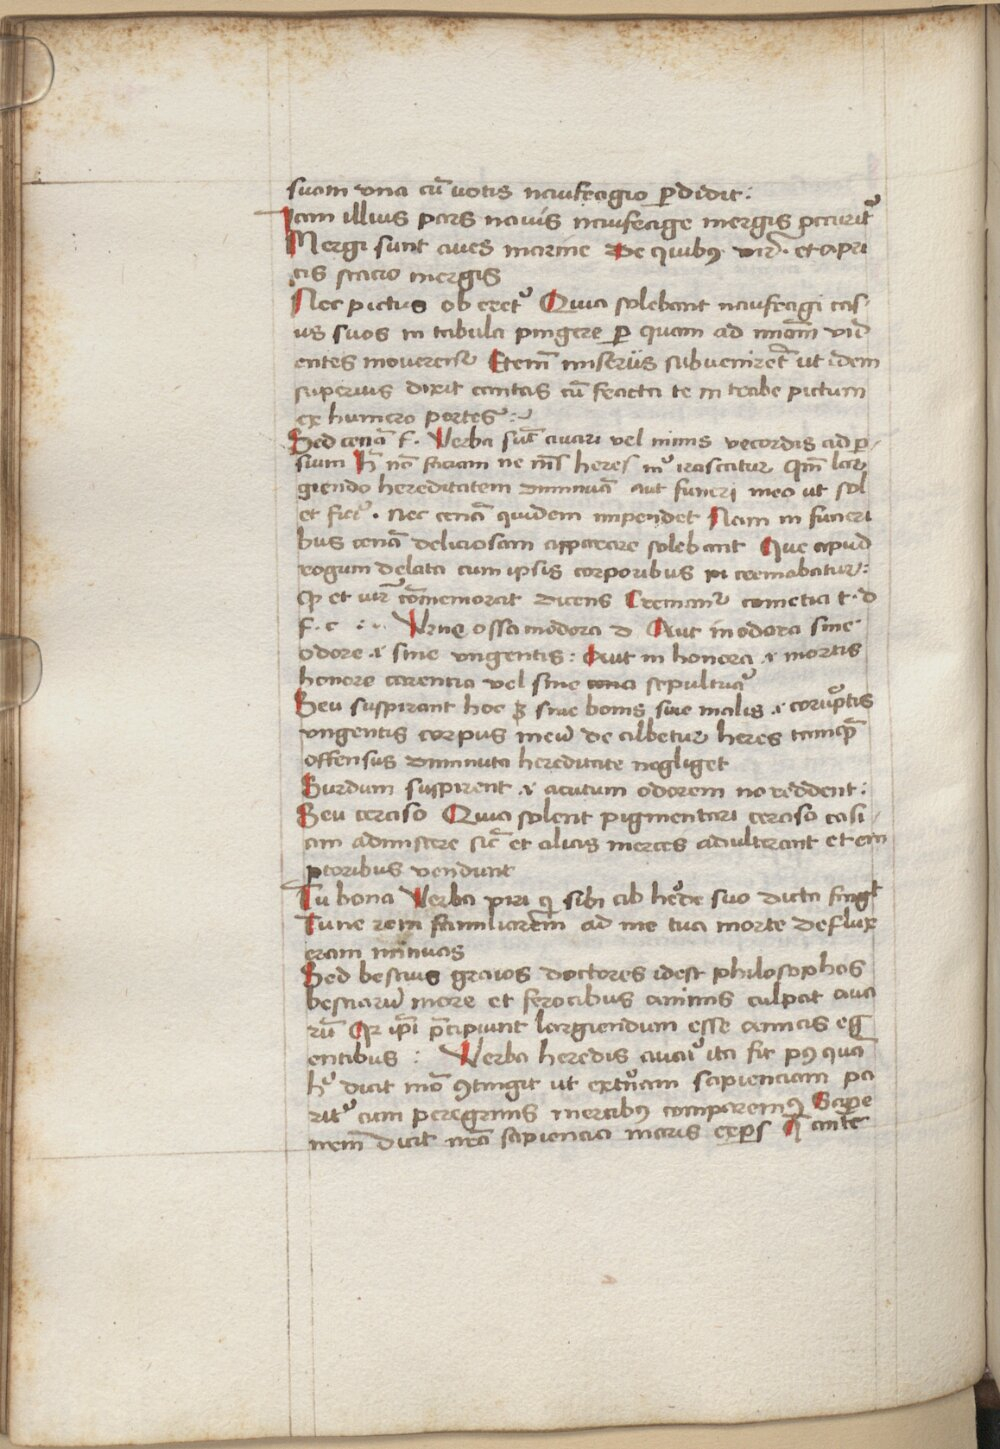 suam una cū uotis naufragio ꝑdidit:
Iam illius pars nauis naufrage mergis ꝑcurit᷑
Mergi sunt aues marine De quibꝯ et apri
cis statio mergis
Nec pictus oberret᷑ Quia solebant naufragi cas-
us suos in tabula pingere ꝑ quam ad uid
entes mouerent᷑ Etem̄ miseriis subuenirēt ut idem
superius dixit cantas cū fracta te in trabe pictum
ex humero portes:~
Sed cenā f. Verba sūt auari uel nimis vecordis ad ꝑ-
sium H̄ nō faciam ne heres irascatur qm̄ lar
giendo hereditatem diminuā aut funeri meo ut sol
et fieri᷑. nec cenā quidem impendet Nam in funeri
bus cenā deliciosam apparare solebant Que apud
rogum delata cum ipsis corporibus cremabatur:
ꝙ et uir̄ cōmemorat dicens Cremant᷑ t. d
f. c :. Vrne ossa inodora d Aut inodora sine
odore .i. sine ungentis: Aut in honora .i. mortis
honore carentia uel sine cena sepultura᷑
Seu suspirant hoc siue bonis siue malis .i. corruptis
ungentis corpus meū de albetur heres tamqā
offensus diminuta hereditate negliget
Surdum suspirent .i. acutum odorem nō reddent:
Seu ceraso Quia solent pigmentari ceraso casi-
am admiscere sic̄ et alias merces adulterant et em
ptoribus vendunt
Tu bona Verba ꝙ sibi ab hēde suo dicta fingt
Tune rem familiarem ad me tua morte deflux
eram minuas
Sed bestius graios doctores idest philosophos
bestiarū more et ferocibus animis culpat aua
rū Qr ip̄i p̄cipiunt largiendum esse amicis eg
entibus: Verba heredis auari᷑ ita fit pꝯ qua
h᷑ dicit mō ꝯtingit ut extn̄am sapienciam pa
rit᷑ cum peregrinis mercibꝯ comparemꝯ Sapere
nem̄ dicit nrā sapiencia maris exꝑs ante